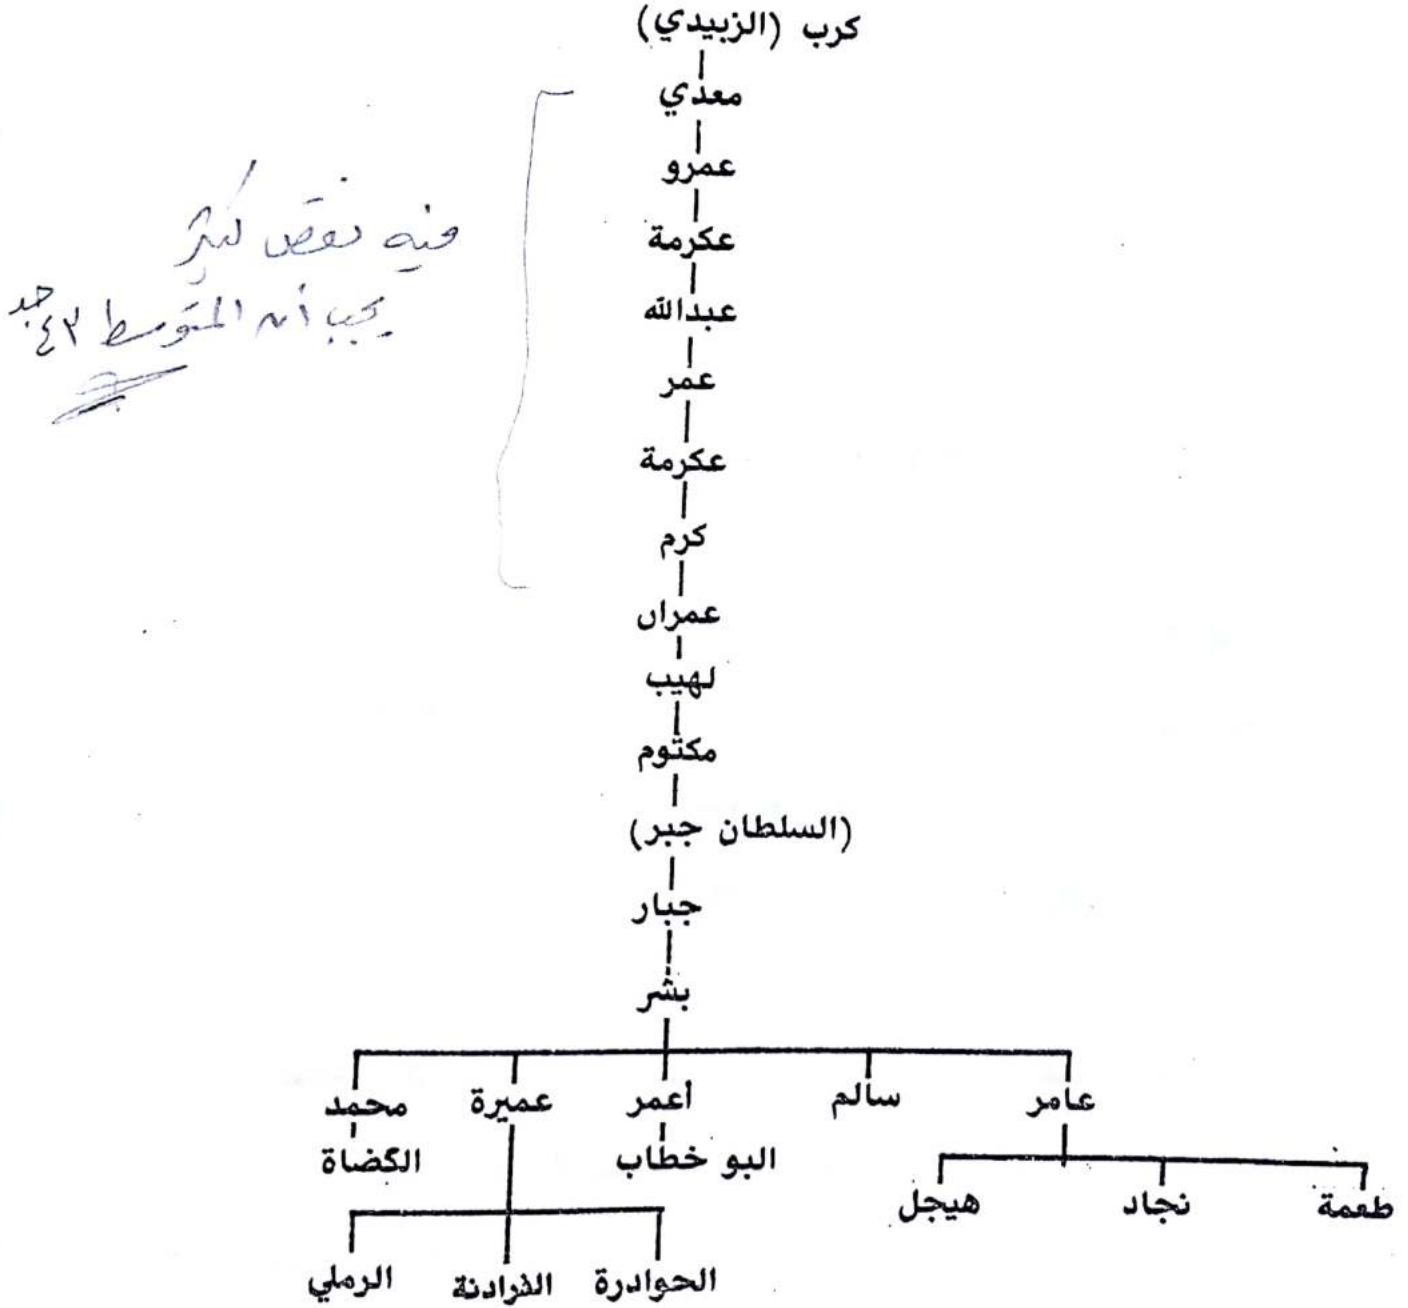 كرب (الزبيدي)
معدي
عمرو
عكرمة
عبدالله
عمر
عكرمة
كرم
عمران
لهيب
مكتوم
(السلطان جبر)
جبار
بشر
عامر سالم أعمر عميرة محمد
البو خطاب الگضاة
طعمة نجاد هيجل
الحوادرة الفرادنة الرملي
فيه نقص كبير
يجب أن المتوسط ٤٣ جد